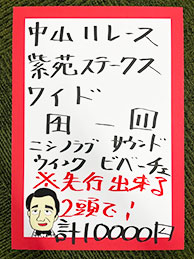 中山11レース
紫苑ステークス
ワイド
田一回
ニシノラブ サウンド
ウインク ビバーチェ
※先行出来る
2頭で!
計10000円